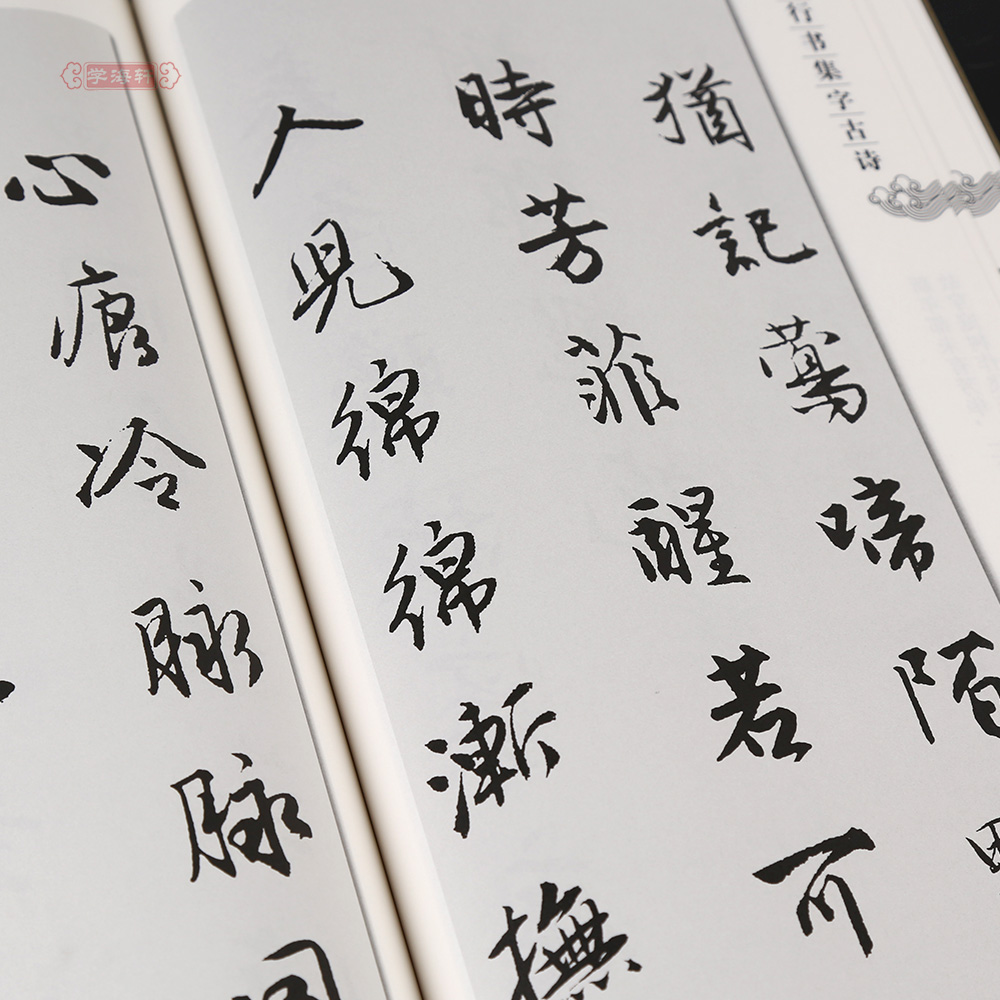 学海轩
行书集字古诗
猶記鶯啼陌
時芳菲醒若可
人兒綿綿漸撫
心痕冷脉脉